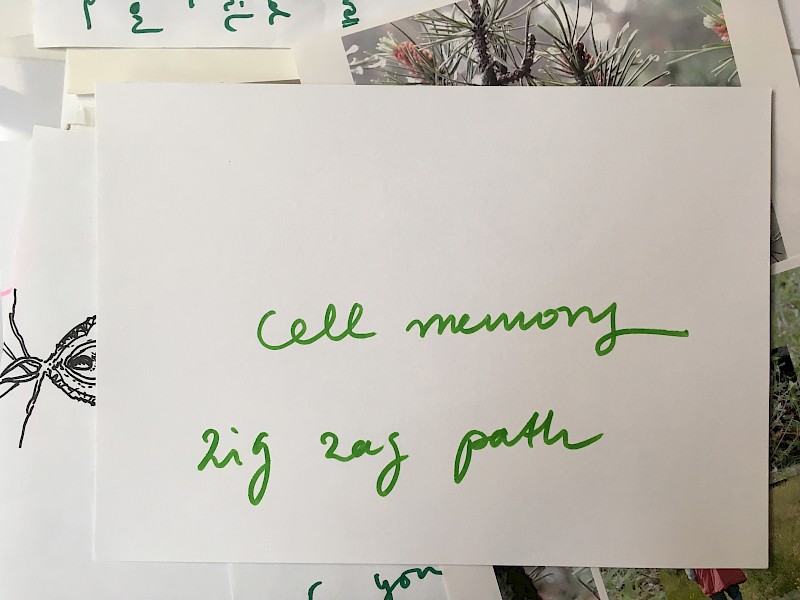 Cell memory
zig zag path
you